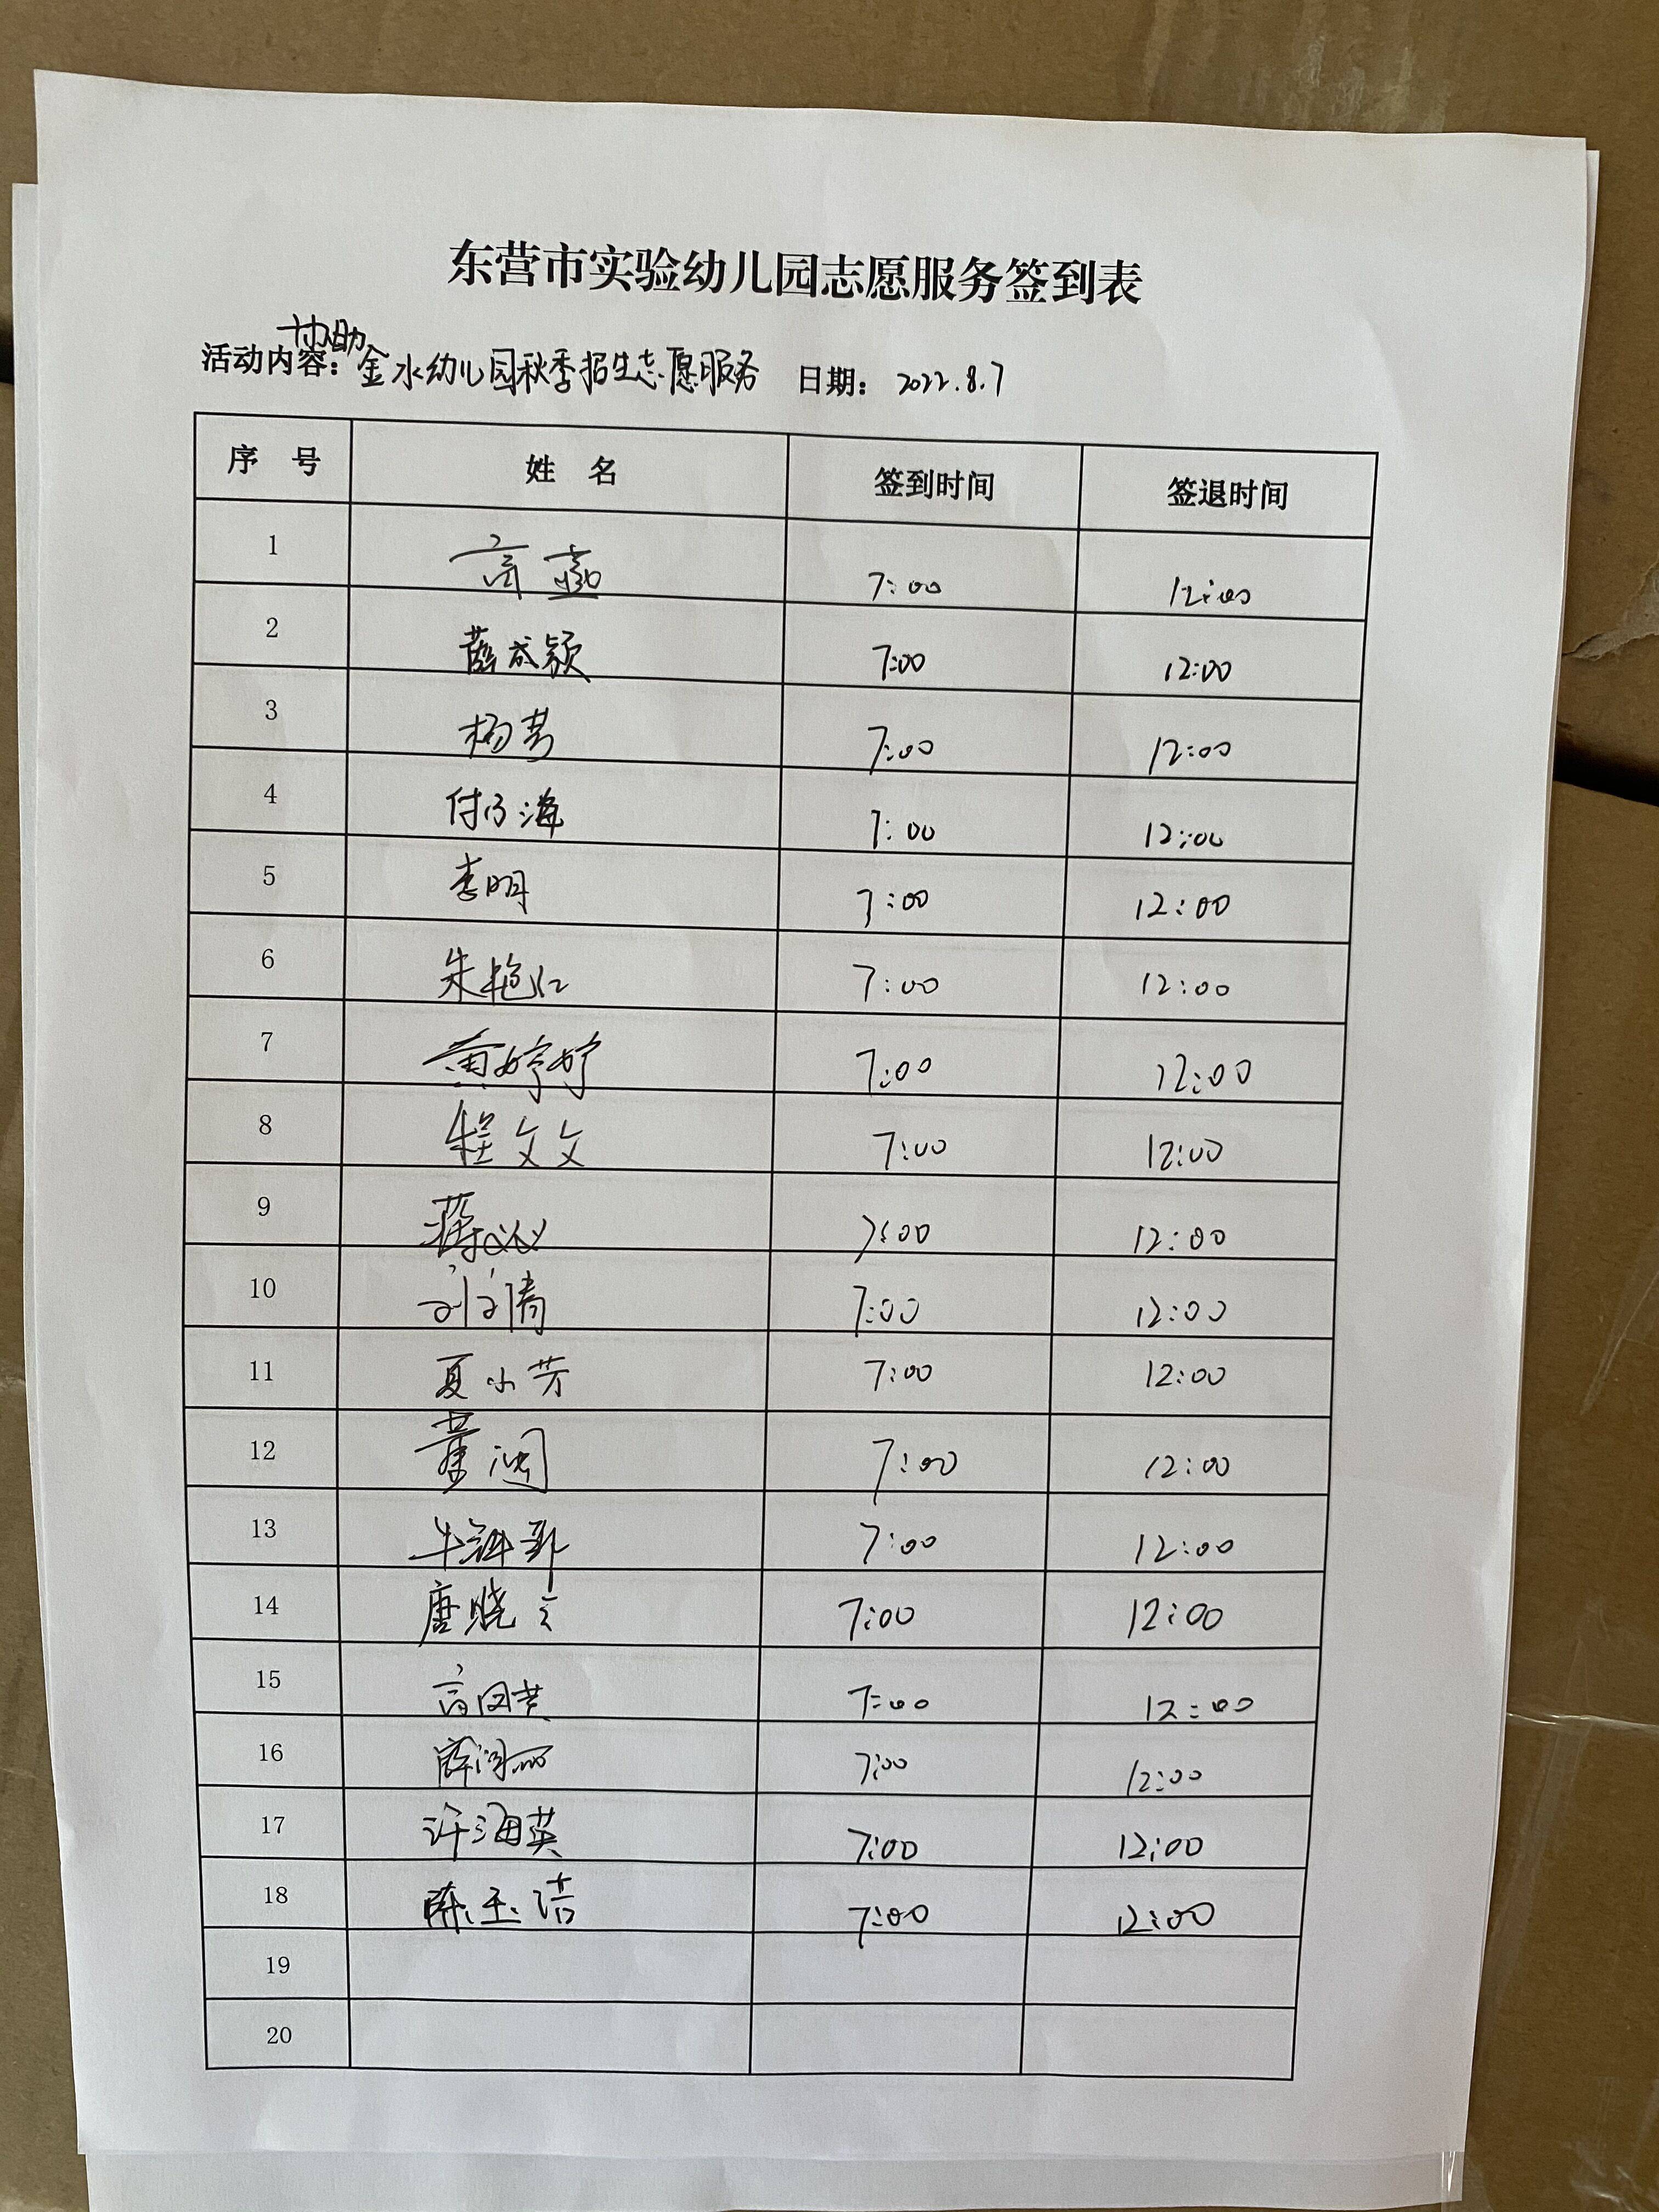 东营市实验幼儿园志愿服务签到表
活动内容：协助金水幼儿园秋季招生志愿服务 日期：2022.8.7
序 号 姓 名 签到时间 签退时间
1 高 7:00 12:00
2 薛成颖 7:00 12:00
3 杨芳 7:00 12:00
4 付海 7:00 12:00
5 李明 7:00 12:00
6 朱艳红 7:00 12:00
7 黄婷婷 7:00 12:00
8 程文文 7:00 12:00
9 蒋 7:00 12:00
10 刘倩 7:00 12:00
11 夏小芳 7:00 12:00
12 董 7:00 12:00
13 牛 7:00 12:00
14 唐晓 7:00 12:00
15 高凤英 7:00 12:00
16 薛丽 7:00 12:00
17 许海英 7:00 12:00
18 陈玉洁 7:00 12:00
19
20